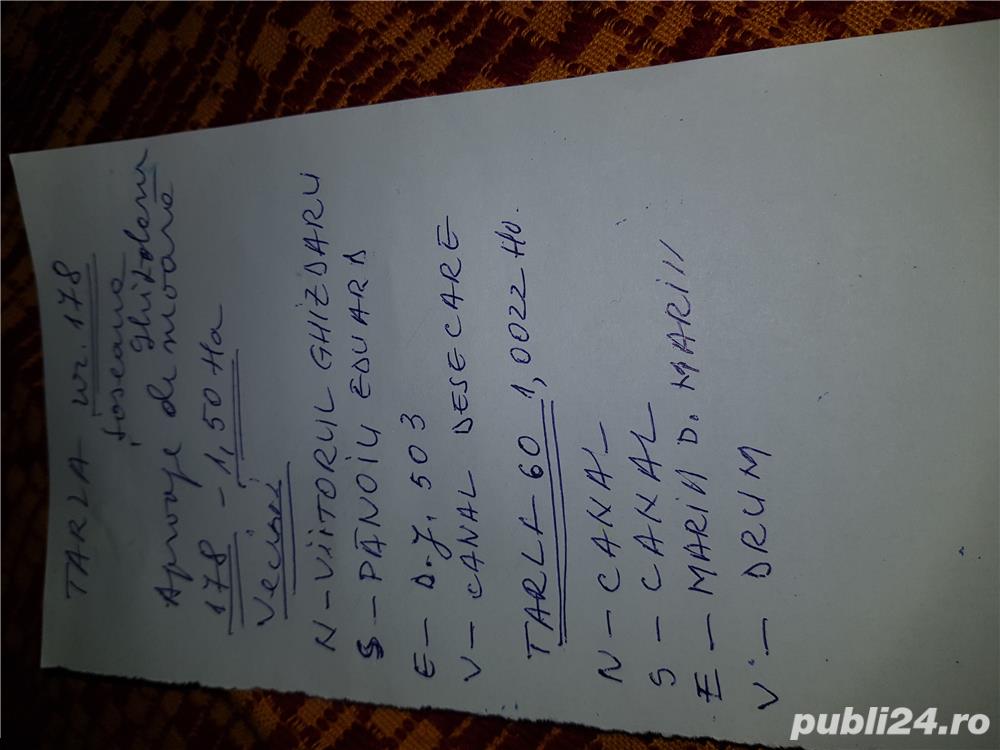 TARLA nr. 178
șoseaua
Aproape Ghizdaru
de moară
178 - 1,50 Ha
Vecini
N - VIITORUL GHIZDARU
S - PĂNOIU EDUARD
E - D.J. 503
V - CANAL DESECARE
TARLA 60 1,0022 Ha.
N - CANAL
S - CANAL
E - MARIN D. MARIN
V - DRUM
publi24.ro